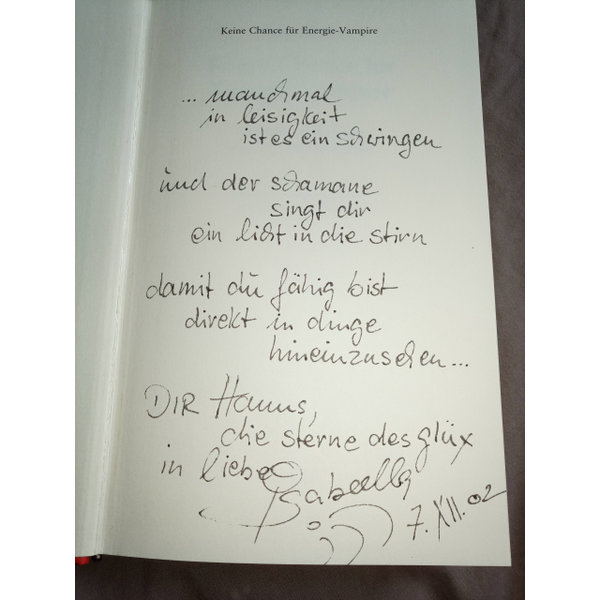 Keine Chance für Energie-Vampire
... manchmal
in leisigkeit
ist es ein schwingen
und der schamane
singt dir
ein licht in die stirn
damit du fähig bist
direkt in dinge
hineinzusehen ...
DIR Hanns,
die sterne des glüx
in liebe
Isabella
7. XII. 02